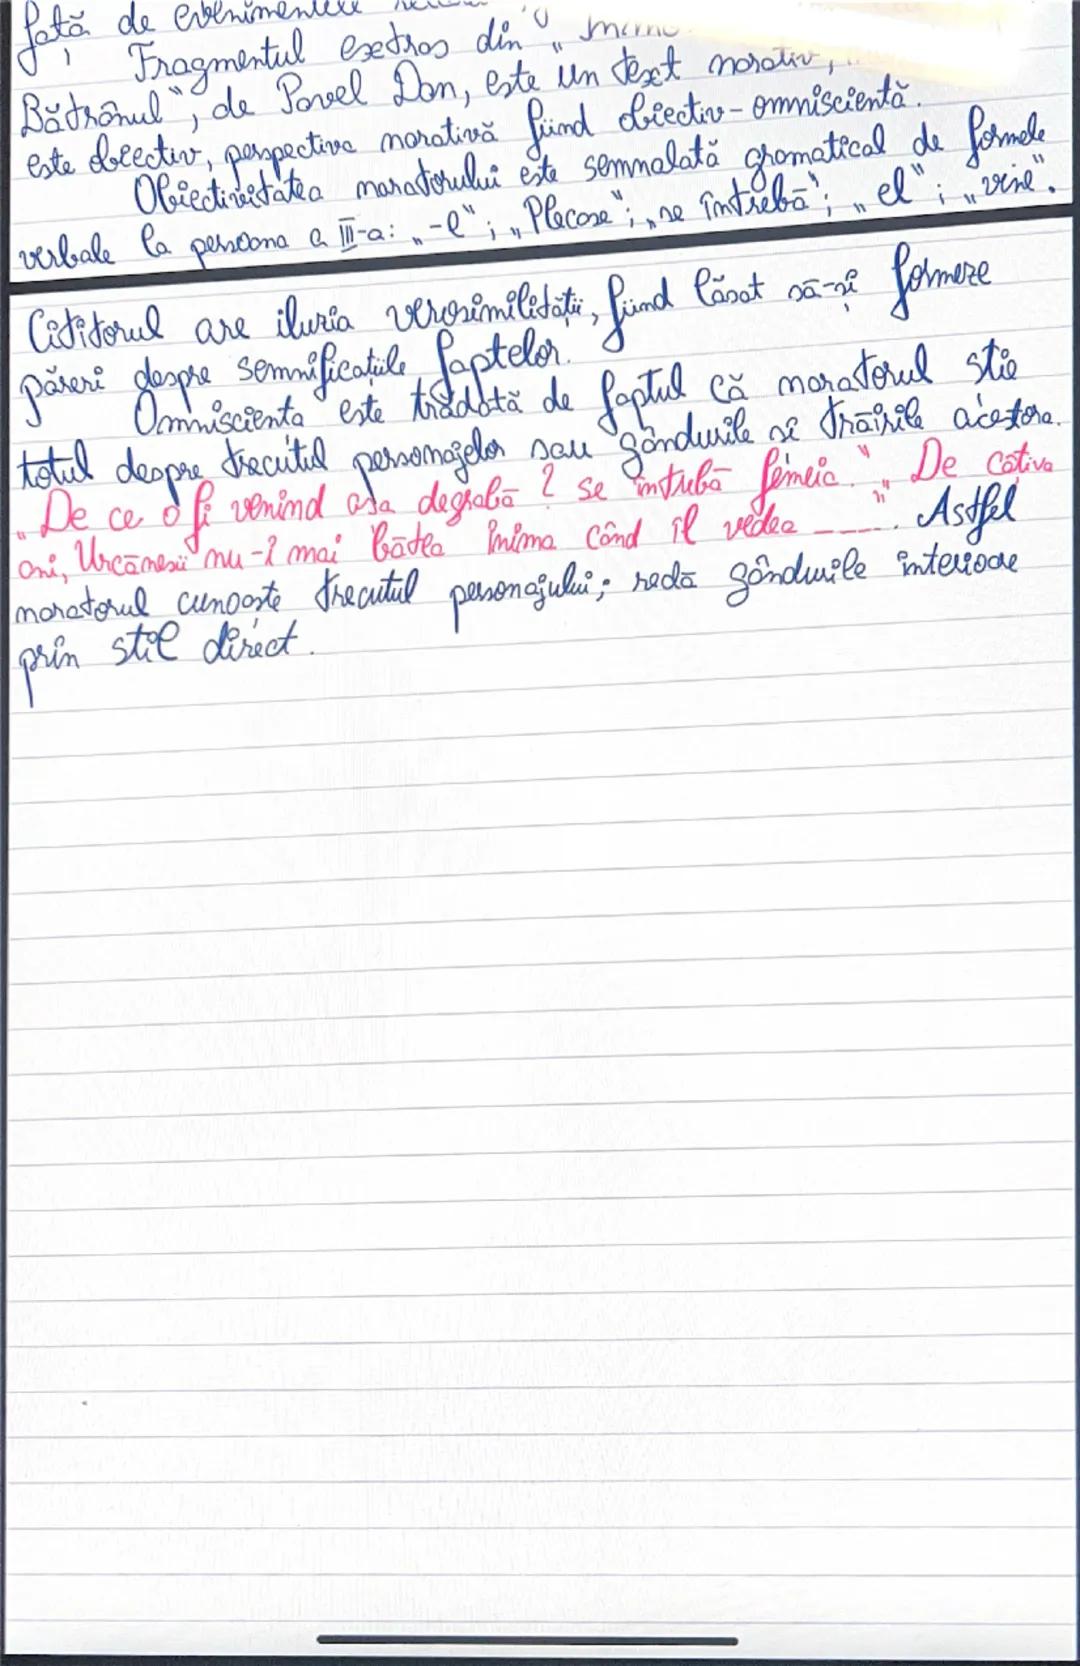 față de evenimentele
Fragmentul extras din „
Bătrânul", de Pavel Dan, este un text narativ,
este obiectiv, perspectiva narativă fiind obiectiv-omniscientă.
Obiectivitatea naratorului este semnalată gramatical de formele
verbale la persoana a III-a: „-l"; „Plecase"; „se întrebă"; „el"; „vine".
Cititorul are iluzia verosimilității, fiind lăsat să-și formeze
păreri despre semnificațiile faptelor.
Omnisciența este trădată de faptul că naratorul stie
totul despre trecutul personajelor sau gândurile si trăirile acestora.
„De ce o fi venind asa degrabă? se întrebă femeia." „De câtiva
ani, Urcănesii nu-i mai bătea inima când îl vedea ____". Astfel
naratorul cunoaste trecutul personajului; redă gândurile interioare
prin stil direct.